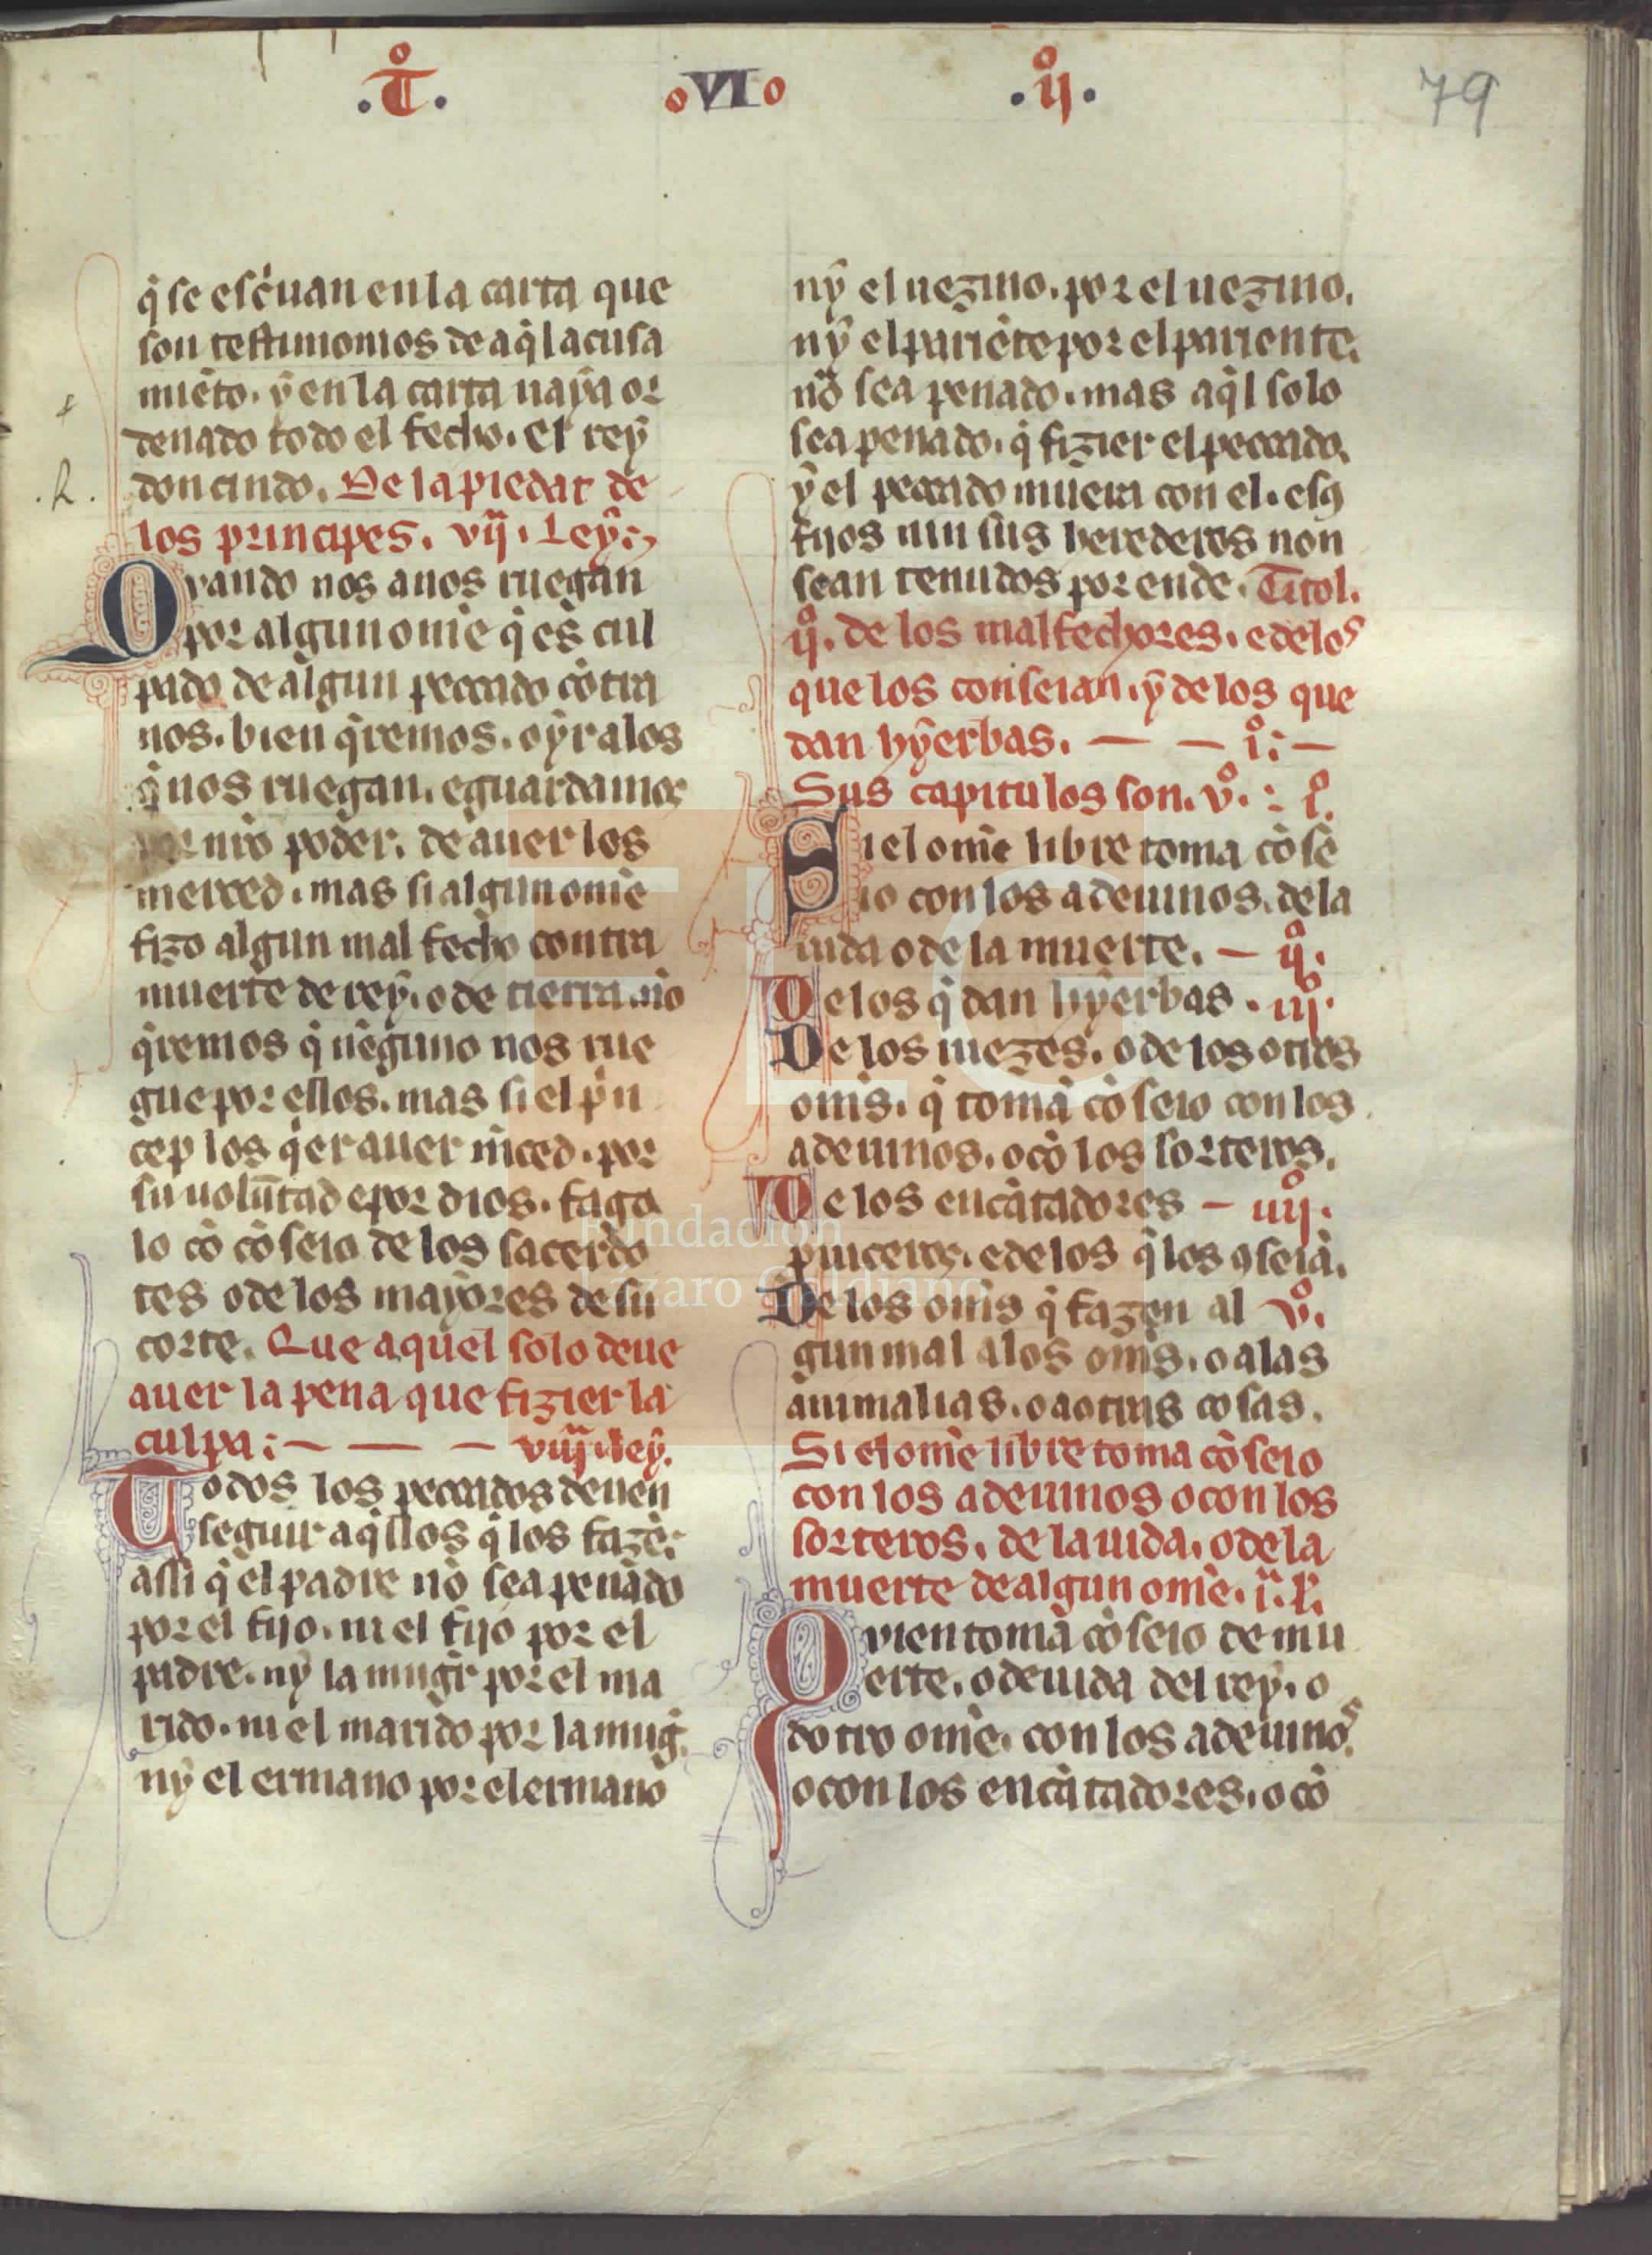 .T̊. oVIo .ij̊. 79
q̇ se esc̓uan en la carta que
son testimonios de aq̇l acusa
miēto. ẏ en la carta uaẏa or
denado todo el fecho. el reẏ
don cindo. De la piedat de
los principes. vij. Leẏ:
Quando nos auos ruegan
por algun ome q̇ es cul
pado de algun peccado cōtra
nos. bien q̇remos. oẏr a los
q̇ nos ruegan. e guardamos
por nr̄o poder. de auer los
merced. mas si algun ome
fizo algun mal fecho contra
muerte de reẏ. o de tierra. nō
q̇remos q̇ nēguno nos rue
gue por ellos. mas si el pͥn
cep los q̇er auer m̄ced. por
su uolūtad e por dios. faga
lo cō cōseio de los sacerdo
tes o de los maẏores de su
corte. Que aquel solo deue
auer la pena que fizier la
culpa: — — — viij. Leẏ.
Todos los peccados deuen
seguir aq̇llos q̇ los fazē.
assi q̇ el padre nō sea penado
por el fijo. ni el fijo por el
padre. nẏ la mugr̄ por el ma
rido. ni el marido por la mug̓.
nẏ el ermano por el ermano
nẏ el uezino. por el uezino.
nẏ el pariēte por el pariente.
nō sea penado. mas aq̇l solo
sea penado. q̇ fizier el peccado.
ẏ el peccado muera con el. e sꝯ
fijos nin sus herederos non
sean tenudos por ende. Titol.
ij̊. de los malfechores. e de los
que los conseian. ẏ de los que
dan hẏerbas. — — i̊: —
Sus capitulos son. v̊. : l̊.
Si el ome libre toma cōse
io con los adeuinos. de la
uida o de la muerte. — ij̊.
De los q̇ dan hẏerbas. iij̊.
De los iuezes. o de los otros
om̄s. q̇ tomā cōseio con los
adeuinos. o cō los sorteros.
De los encātadores — iiij̊.
prouiceros. e de los q̇ los ꝯseiā.
De los om̄s q̇ fazen al v̊.
gun mal a los om̄s. o a las
animalias. o a otras cosas.
Si el ome libre toma cōseio
con los adeuinos o con los
sorteros. de la uida. o de la
muerte de algun ome. i̊. l̊.
Quien tomā cōseio de mu
erte. o de uida del reẏ. o
dotro ome. con los adeuinos.
o con los encātadores. o cō
+
.R.
FLG
Fundación
Lázaro Galdiano